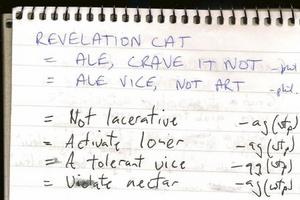 REVELATION CAT
= ALE, CRAVE IT NOT -phil.
= ALE VICE, NOT ART -phil.
= Not lacerative -ag (wstp)
= Activate loner -ag (wstp)
= A tolerant vice -ag (wstp)
= Violate nectar -ag (wstp)